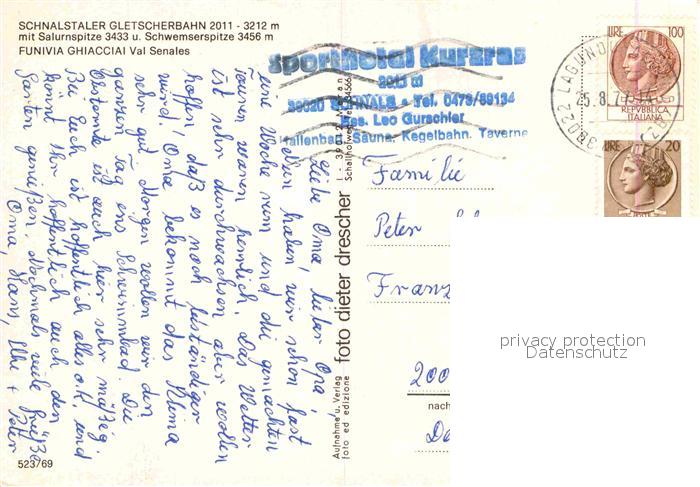 SCHNALSTALER GLETSCHERBAHN 2011 - 3212 m
mit Salurnspitze 3433 u. Schwemserspitze 3456 m
FUNIVIA GHIACCIAI Val Senales
Sporthotel Kurzras
2011 m
39020 SCHNALS • Tel. 0473/89134
Bes. Leo Gurschler
Hallenbad, Sauna, Kegelbahn, Taverne
LIRE 100
REPVBBLICA
ITALIANA
39022 LAGUNDO
25.8.
LIRE 20
POSTE
Liebe Oma, lieber Opa,
haben wir schon fast
eine Woche rum und die gemachten
Touren waren herrlich. Das Wetter
ist sehr durchwachsen aber wir wollen
hoffen, daß es noch beständiger
wird. Oma bekommt das Klima
sehr gut. Morgen wollen wir den
ganzen Tag ins Schwimmbad. Die
ist auch hier sehr mäßig.
Bei Euch ist hoffentlich alles o.K. und
könnt Ihr hoffentlich auch den
Garten genießen. Nochmals viele Grüße
Oma, Mam, Elke + Peter
Aufnahme u. Verlag
foto ed edizione
foto dieter drescher
Familie
Peter
Franz
200
nach
De
privacy protection
Datenschutz
523/69